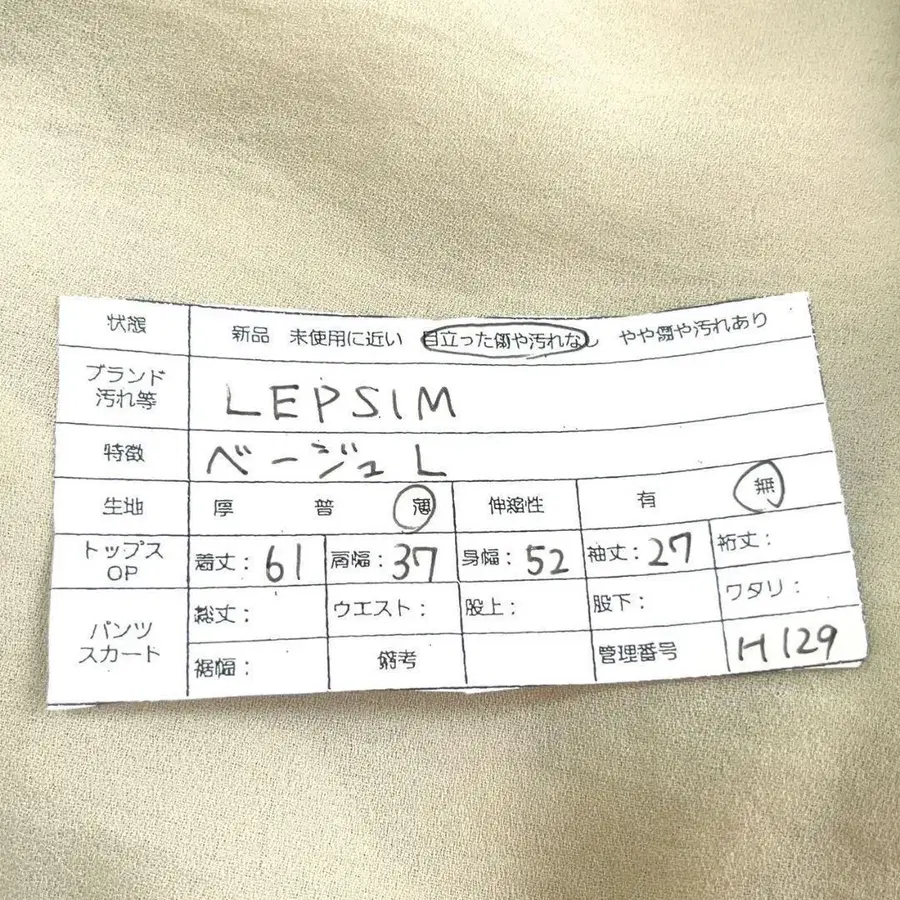 状態 新品 未使用に近い 目立った傷や汚れなし やや傷や汚れあり
ブランド
汚れ等 LEPSIM
特徴 ベージュ L
生地 厚 普 薄 伸縮性 有 無
トップス
OP 着丈：61 肩幅：37 身幅：52 袖丈：27 裄丈：
パンツ
スカート 総丈： ウエスト： 股上： 股下： ワタリ：
裾幅： 備考 管理番号 H129